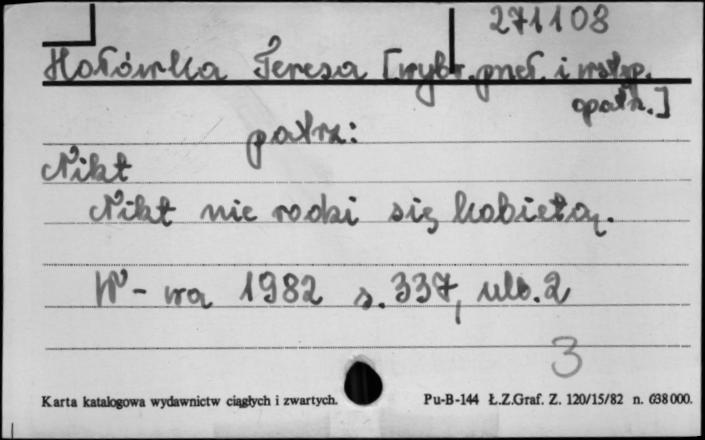 271108
Hołówka Teresa [wybr. przeł. i wstęp.
opatrz.]
patrz:
Nikt
Nikt nie rodzi się kobietą.
W-wa 1982 s. 337, ulb. 2
3
Karta katalogowa wydawnictw ciągłych i zwartych. Pu-B-144 Ł.Z.Graf. Z. 120/15/82 n. 638000.